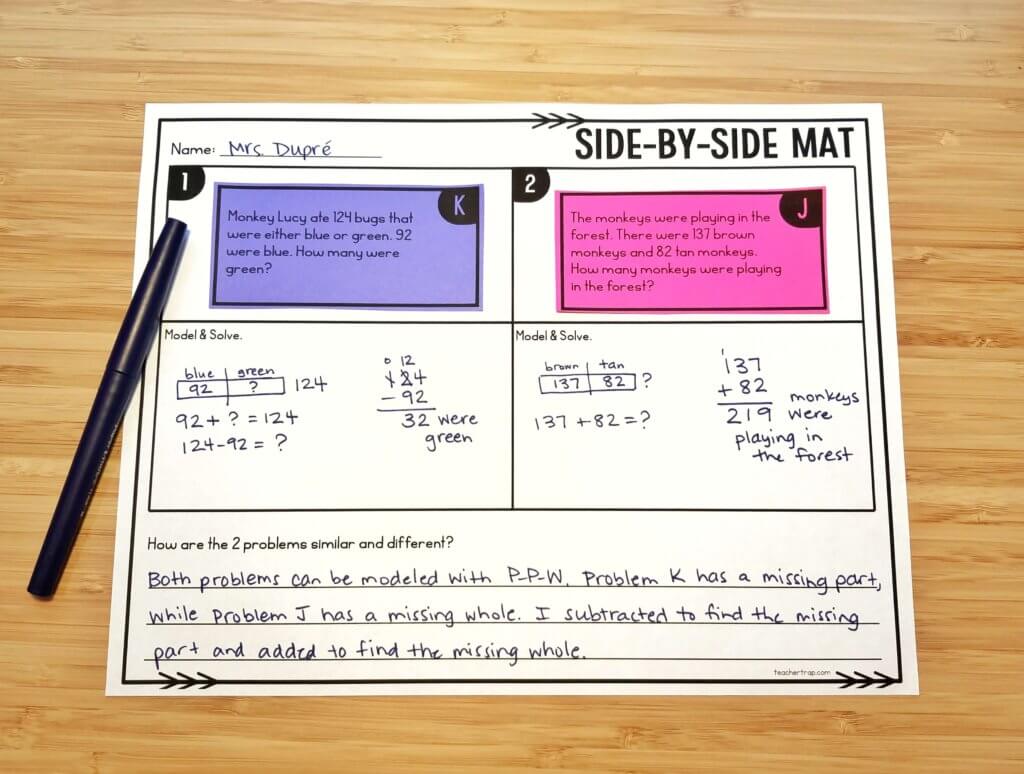 SIDE-BY-SIDE MAT
Name: Mrs. Dupré
1
K
Monkey Lucy ate 124 bugs that
were either blue or green. 92
were blue. How many were
green?
2
J
The monkeys were playing in the
forest. There were 137 brown
monkeys and 82 tan monkeys.
How many monkeys were playing
in the forest?
Model & Solve.
blue green
92 ? 124
92 + ? = 124
124-92 = ?
0 12
124
- 92
32 were
green
Model & Solve.
brown tan
137 82 ?
137 + 82 = ?
1
137
+ 82
219 monkeys
were
playing in
the forest
How are the 2 problems similar and different?
Both problems can be modeled with P-P-W. Problem K has a missing part,
while Problem J has a missing whole. I subtracted to find the missing
part and added to find the missing whole.
teachertrap.com